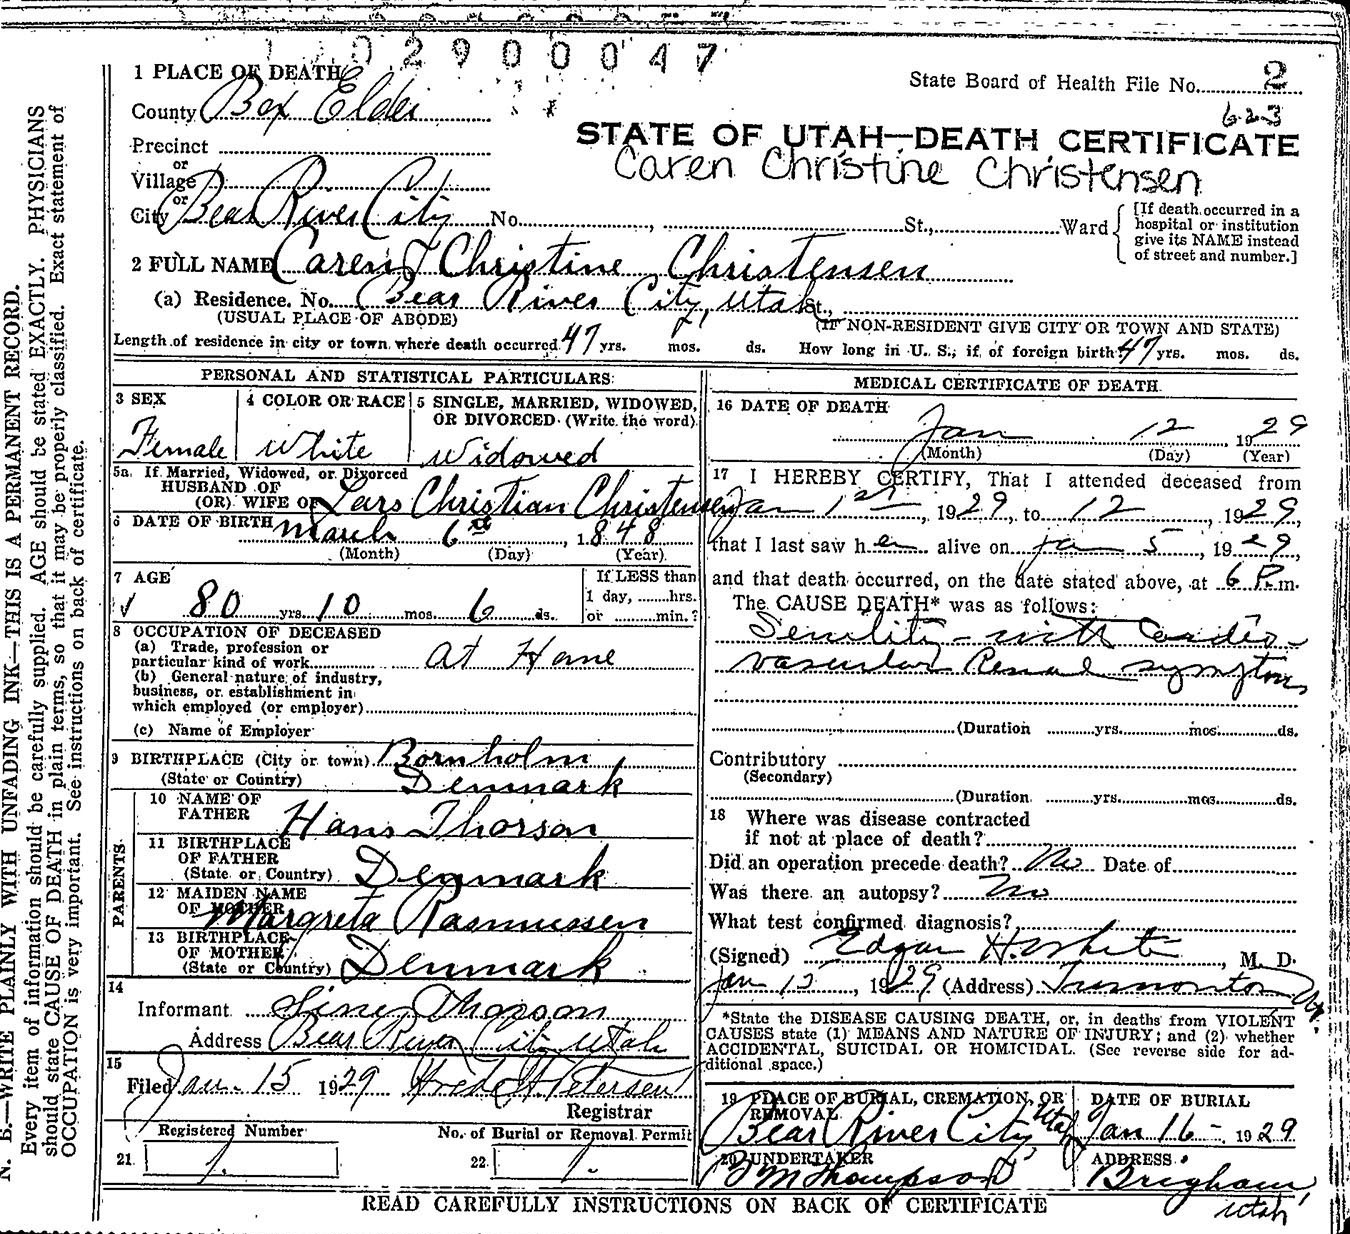 1 0 2 9 0 0 0 4 7
1 PLACE OF DEATH
State Board of Health File No. 2
County Box Elder
623
STATE OF UTAH—DEATH CERTIFICATE
Precinct
Caren Christine Christensen
or
Village
or
City Bear River City No. , St., Ward
[If death occurred in a
hospital or institution
give its NAME instead
of street and number.]
2 FULL NAME Caren Christine Christensen
(a) Residence. No. Bear River City, Utah St.,
(USUAL PLACE OF ABODE) (IF NON-RESIDENT GIVE CITY OR TOWN AND STATE)
Length of residence in city or town where death occurred 47 yrs. mos. ds. How long in U. S., if of foreign birth 47 yrs. mos. ds.
PERSONAL AND STATISTICAL PARTICULARS
3 SEX 4 COLOR OR RACE 5 SINGLE, MARRIED, WIDOWED,
OR DIVORCED (Write the word)
Female White Widowed
5a If Married, Widowed, or Divorced
HUSBAND OF
(OR) WIFE OF Lars Christian Christensen
6 DATE OF BIRTH March 6 , 1848
(Month) (Day) (Year)
7 AGE If LESS than
1 day, hrs.
80 yrs. 10 mos. 6 ds. or min.?
8 OCCUPATION OF DECEASED
(a) Trade, profession or
particular kind of work At Home
(b) General nature of industry,
business, or establishment in
which employed (or employer)
(c) Name of Employer
9 BIRTHPLACE (City or town) Bornholm
(State or Country) Denmark
PARENTS
10 NAME OF
FATHER Hans Thorson
11 BIRTHPLACE
OF FATHER
(State or Country) Denmark
12 MAIDEN NAME
OF MOTHER Margreta Rasmussen
13 BIRTHPLACE
OF MOTHER
(State or Country) Denmark
14
Informant Thorson
Address Bear River City Utah
15
Filed Jan. 15 1929 Petersen
Registrar
Registered Number No. of Burial or Removal Permit
21 1. 22 1.
MEDICAL CERTIFICATE OF DEATH
16 DATE OF DEATH
Jan 12 , 1929
(Month) (Day) (Year)
17 I HEREBY CERTIFY, That I attended deceased from
Jan 1st , 1929, to 12 , 1929,
that I last saw her alive on Jan 5 , 1929,
and that death occurred, on the date stated above, at 6 P.m.
The CAUSE DEATH* was as follows:
Senility - with Cardio-
vascular Renal symptoms
(Duration yrs. mos. ds.
Contributory
(Secondary)
(Duration yrs. mos. ds.
18 Where was disease contracted
if not at place of death?
Did an operation precede death? No Date of
Was there an autopsy? No
What test confirmed diagnosis?
(Signed) Edgar H. White , M. D.
Jan 13 , 1929 (Address) Tremonton Ut.
*State the DISEASE CAUSING DEATH, or, in deaths from VIOLENT
CAUSES state (1) MEANS AND NATURE OF INJURY; and (2) whether
ACCIDENTAL, SUICIDAL OR HOMICIDAL. (See reverse side for ad-
ditional space.)
19 PLACE OF BURIAL, CREMATION, OR
REMOVAL DATE OF BURIAL
Bear River City Utah Jan 16 - 1929
20 UNDERTAKER ADDRESS
Thompson Brigham,
Utah
READ CAREFULLY INSTRUCTIONS ON BACK OF CERTIFICATE
N. B.—WRITE PLAINLY WITH UNFADING INK—THIS IS A PERMANENT RECORD.
Every item of information should be carefully supplied. AGE should be stated EXACTLY. PHYSICIANS
should state CAUSE OF DEATH in plain terms, so that it may be properly classified. Exact statement of
OCCUPATION is very important. See instructions on back of certificate.